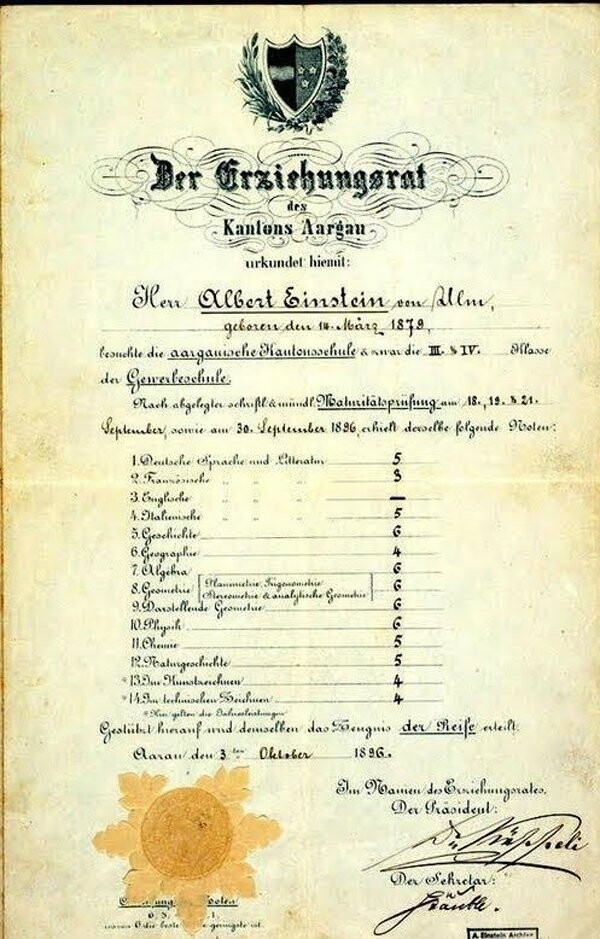 Der Erziehungsrat
des
Kantons Aargau
urkundet hiemit:
Herr Albert Einstein von Ulm,
geboren den 14. März 1879,
besuchte die aargauische Kantonsschule & zwar die III. & IV. Klasse
der Gewerbeschule.
Nach abgelegter schriftl. & mündl. Maturitätsprüfung am 18., 19. & 21.
September, sowie am 30. September 1896, erhielt derselbe folgende Noten:
1. Deutsche Sprache und Litteratur 5
2. Französische " " " 3
3. Englische " " " —
4. Italienische " " " 5
5. Geschichte 6
6. Geographie 4
7. Algebra 6
8. Geometrie [Planimetrie, Trigonometrie Stereometrie & analytische Geometrie] 6
9. Darstellende Geometrie 6
10. Physik 6
11. Chemie 5
12. Naturgeschichte 5
*13. Im Kunstzeichnen 4
*14. Im technischen Zeichnen 4
*Hier gelten die Jahresleistungen
Gestützt hierauf wird demselben das Zeugnis der Reife erteilt.
Aarau den 3ten Oktober 1896.
Im Namen des Erziehungsrates,
Der Präsident:
Der Sekretär:
Noten
6. 5. 1.
wovon 6 die beste geringste ist.
A. Einstein Archive